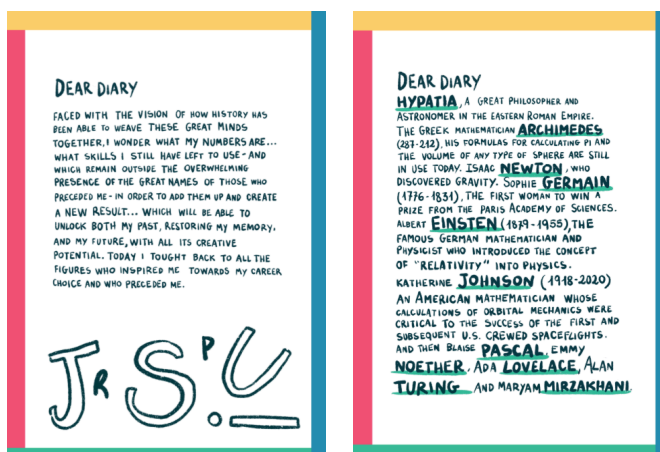 DEAR DIARY
FACED WITH THE VISION OF HOW HISTORY HAS
BEEN ABLE TO WEAVE THESE GREAT MINDS
TOGETHER, I WONDER WHAT MY NUMBERS ARE...
WHAT SKILLS I STILL HAVE LEFT TO USE - AND
WHICH REMAIN OUTSIDE THE OVERWHELMING
PRESENCE OF THE GREAT NAMES OF THOSE WHO
PRECEDED ME - IN ORDER TO ADD THEM UP AND CREATE
A NEW RESULT... WHICH WILL BE ABLE TO
UNLOCK BOTH MY PAST, RESTORING MY MEMORY,
AND MY FUTURE, WITH ALL ITS CREATIVE
POTENTIAL. TODAY I TOUGHT BACK TO ALL THE
FIGURES WHO INSPIRED ME TOWARDS MY CAREER
CHOICE AND WHO PRECEDED ME.
J R S P U
DEAR DIARY
HYPATIA, A GREAT PHILOSOPHER AND
ASTRONOMER IN THE EASTERN ROMAN EMPIRE.
THE GREEK MATHEMATICIAN ARCHIMEDES
(287-212), HIS FORMULAS FOR CALCULATING PI AND
THE VOLUME OF ANY TYPE OF SPHERE ARE STILL
IN USE TODAY. ISAAC NEWTON, WHO
DISCOVERED GRAVITY. SOPHIE GERMAIN
(1776-1831), THE FIRST WOMAN TO WIN A
PRIZE FROM THE PARIS ACADEMY OF SCIENCES.
ALBERT EINSTEN (1879-1955), THE
FAMOUS GERMAN MATHEMATICIAN AND
PHYSICIST WHO INTRODUCED THE CONCEPT
OF "RELATIVITY" INTO PHYSICS.
KATHERINE JOHNSON (1918-2020)
AN AMERICAN MATHEMATICIAN WHOSE
CALCULATIONS OF ORBITAL MECHANICS WERE
CRITICAL TO THE SUCCESS OF THE FIRST AND
SUBSEQUENT U.S. CREWED SPACEFLIGHTS.
AND THEN BLAISE PASCAL, EMMY
NOETHER, ADA LOVELACE, ALAN
TURING AND MARYAM MIRZAKHANI